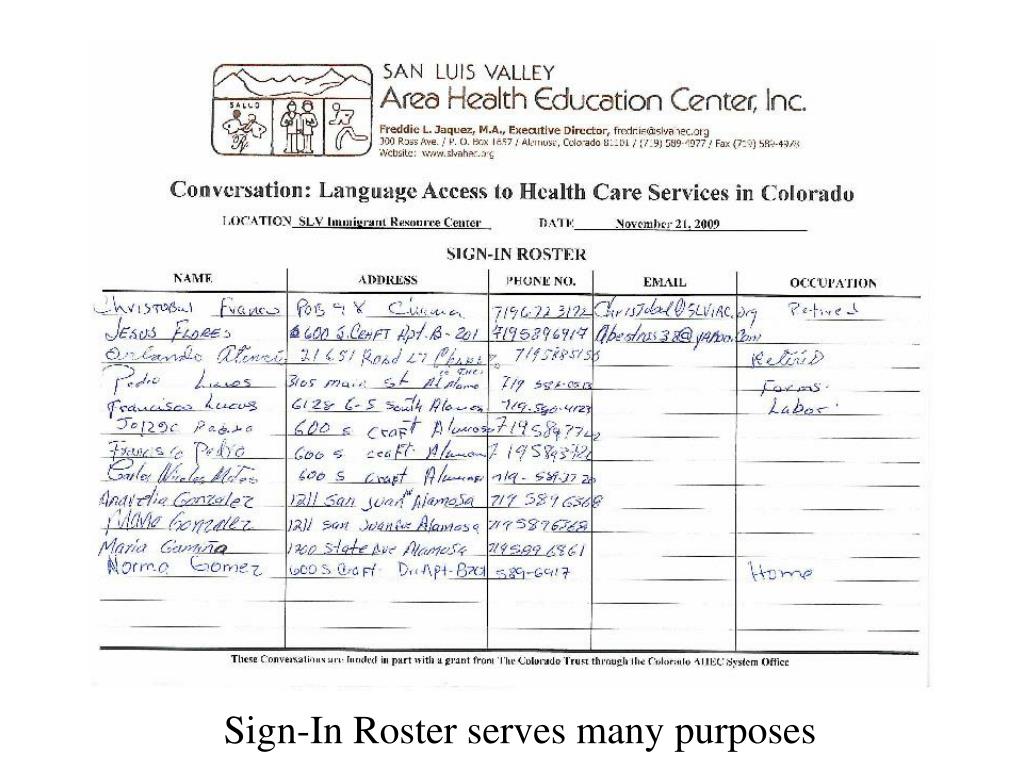 SAN LUIS VALLEY
Area Health Education Center, Inc.
SALUD
Freddie L. Jaquez, M.A., Executive Director, freddie@slvahec.org
300 Ross Ave. / P. O. Box 1657 / Alamosa, Colorado 81101 / (719) 589-4977 / Fax (719) 589-4978
Website: www.slvahec.org
Conversation: Language Access to Health Care Services in Colorado
LOCATION SLV Immigrant Resource Center DATE November 21, 2009
SIGN-IN ROSTER
NAME ADDRESS PHONE NO. EMAIL OCCUPATION
Christobal Franco POB 98 7196723172 Christobal@SLVIRC.org Retired
JESUS FLORES 600 S. CRAFT Apt. B-201 7195896917 @yahoo.com
Orlando 21651 Road Retired
Pedro 3105 main st Alamo 719 Farms.
Francisco Lucas 6128 6-S South Alamosa 719-580-4123 Labor
600 s craft Alamosa
Francisco Pedro 600 s craft Alamosa
Carlos Nicolas 600 s craft Alamosa
Anavelia Gonzalez 1211 San Juan Alamosa 719 589 6368
Gonzalez 1211 San Juan Ave Alamosa 719 5896368
Maria 1200 State Ave Alamosa 719 589 6861
Norma Gomez 600 S Craft Dr. Apt-B201 589-6917 Home
These Conversations are funded in part with a grant from The Colorado Trust through the Colorado AHEC System Office
Sign-In Roster serves many purposes